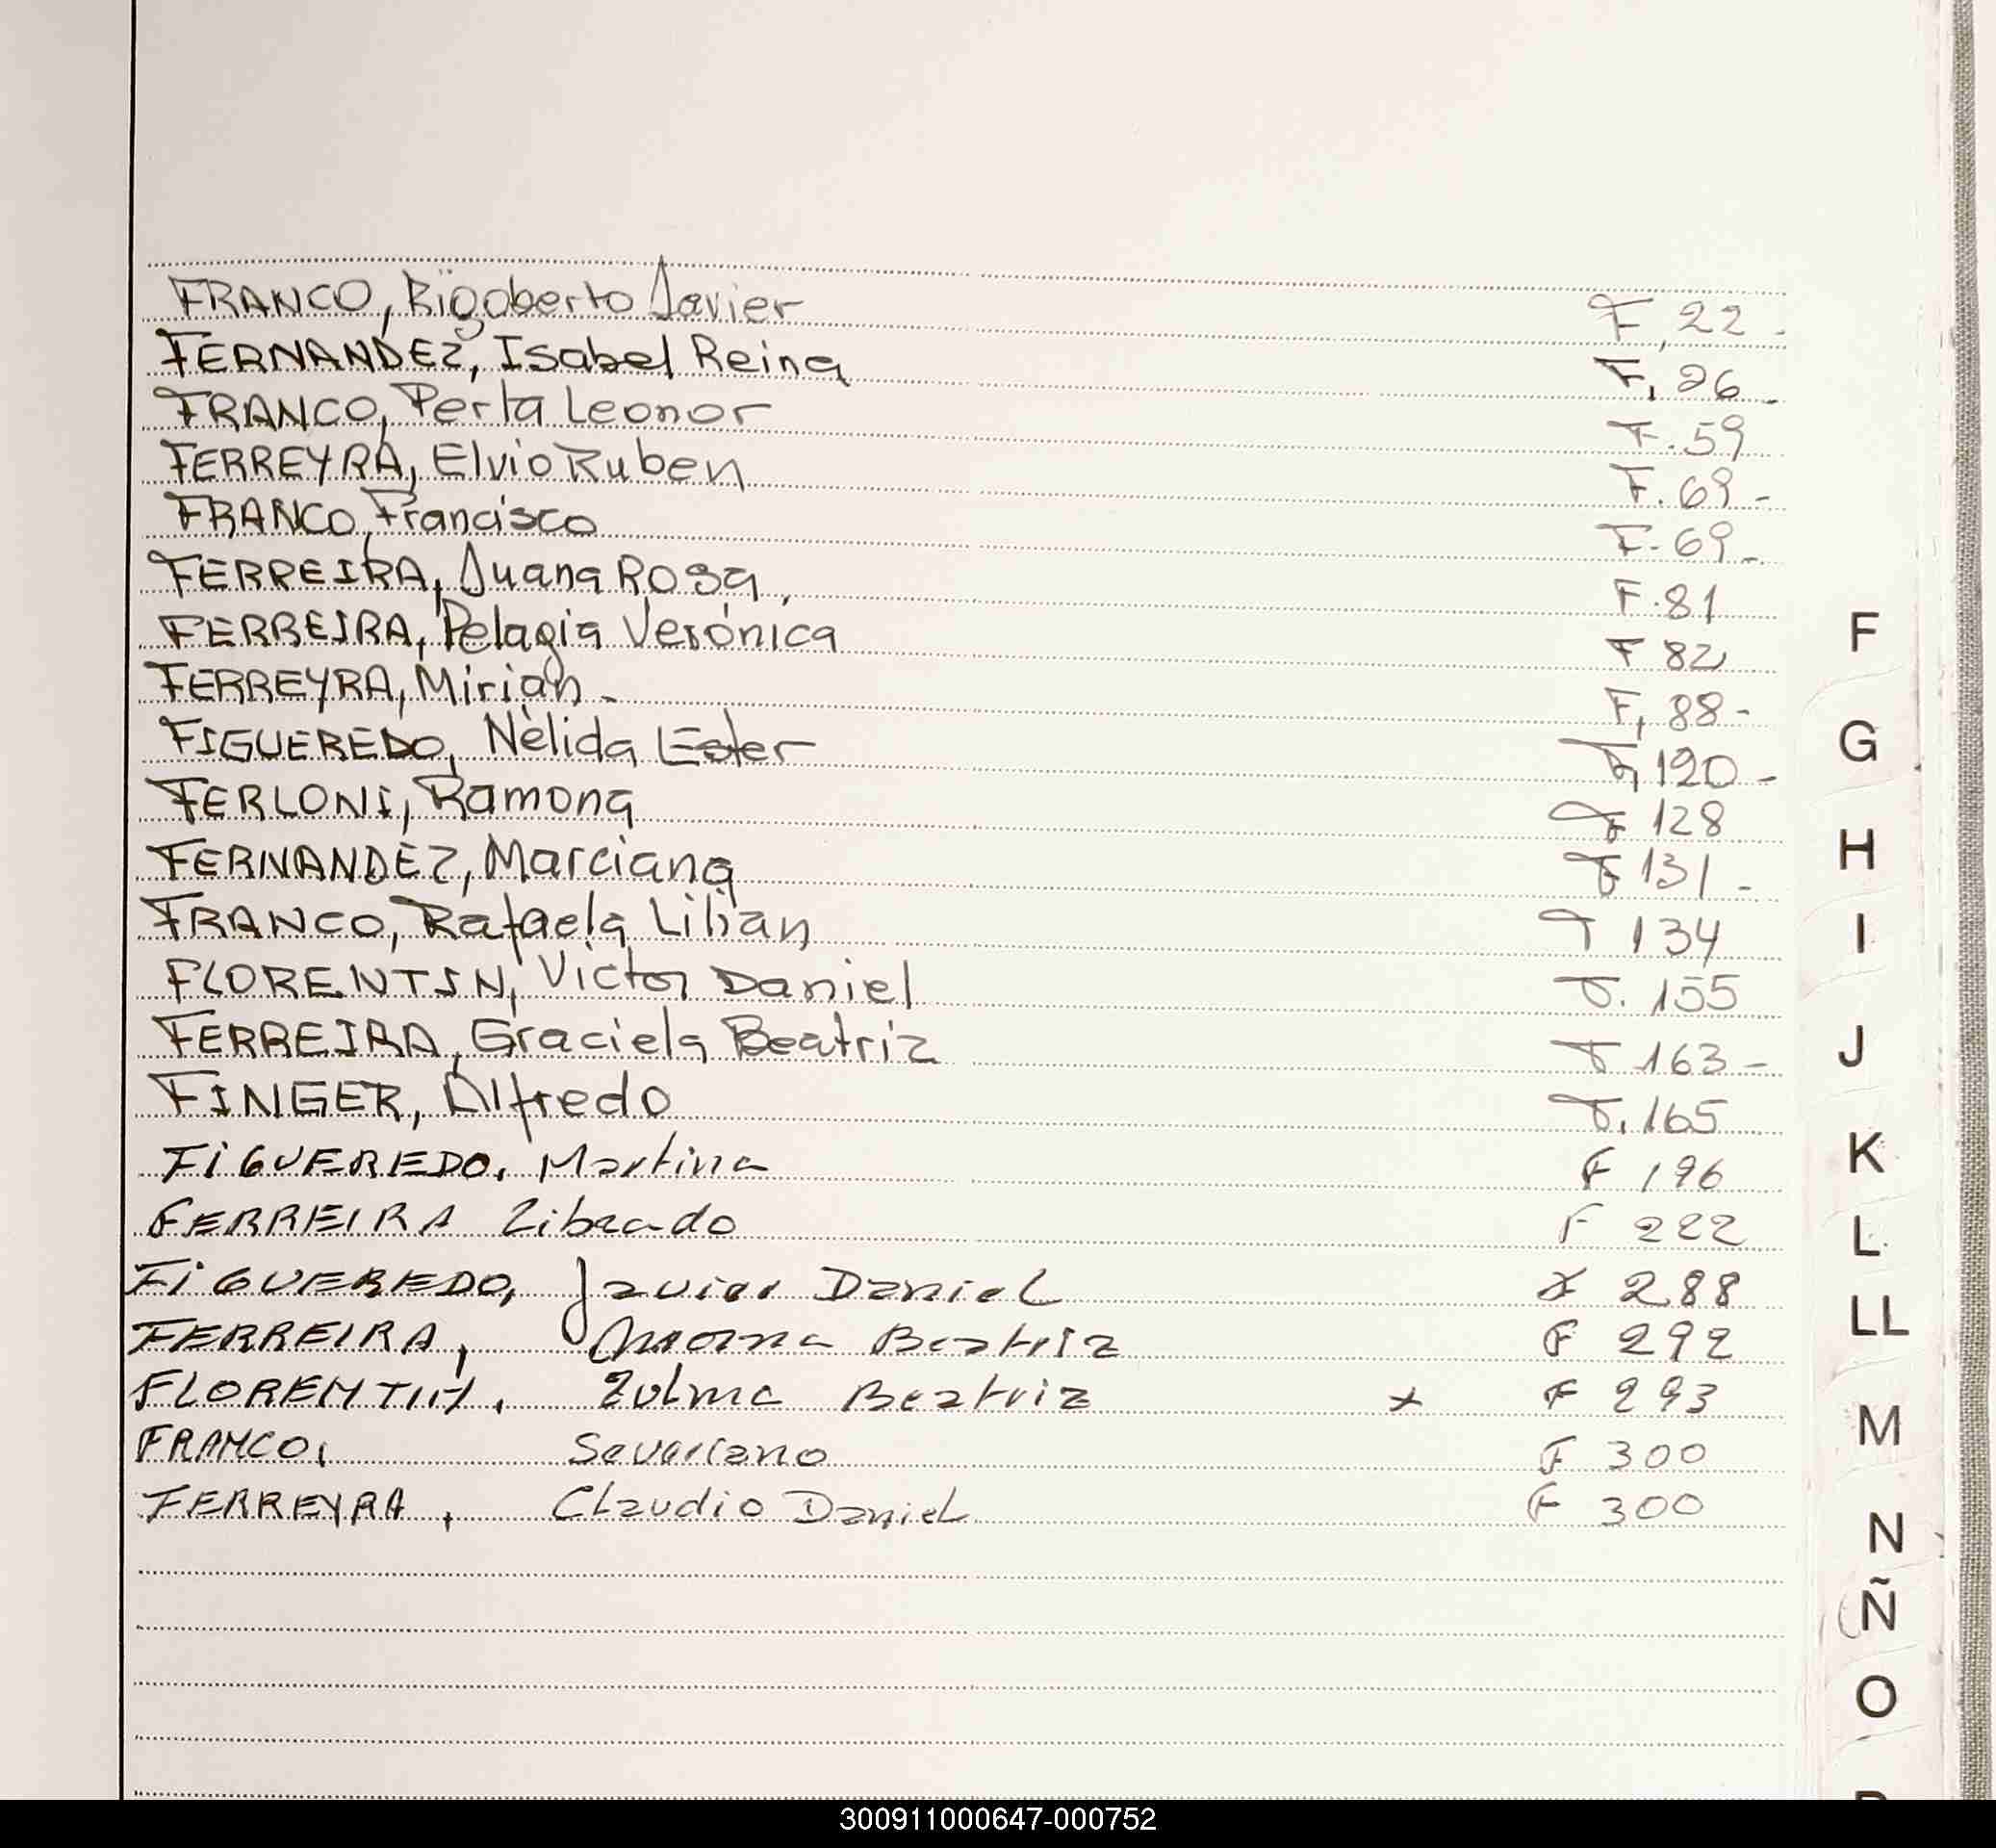 FRANCO, Rigoberto Javier F, 22 -
FERNANDEZ, Isabel Reina F, 26 -
FRANCO, Perla Leonor F. 59
FERREYRA, Elvio Ruben F. 69 -
FRANCO, Francisco F. 69 -
FERREIRA, Juana Rosa, F. 81
FERREIRA, Pelagia Verónica F 82
FERREYRA, Mirian - F, 88 -
FIGUEREDO, Nélida Ester F, 120 -
FERLONI, Ramona F 128
FERNANDEZ, Marciana F 131 -
FRANCO, Rafaela Lilian F 134
FLORENTIN, Victor Daniel F. 155
FERREIRA, Graciela Beatriz F 163 -
FINGER, Alfredo F. 165
FIGUEREDO, Martina F 196
FERREIRA Librado F 222
FIGUEREDO, Javier Daniel F 288
FERREIRA, Beatriz F 292
FLORENTIN, Zulma Beatriz x F 293
FRANCO, Severiano F 300
FERREYRA, Claudio Daniel F 300
F
G
H
I
J
K
L
LL
M
N
Ñ
O
300911000647-000752